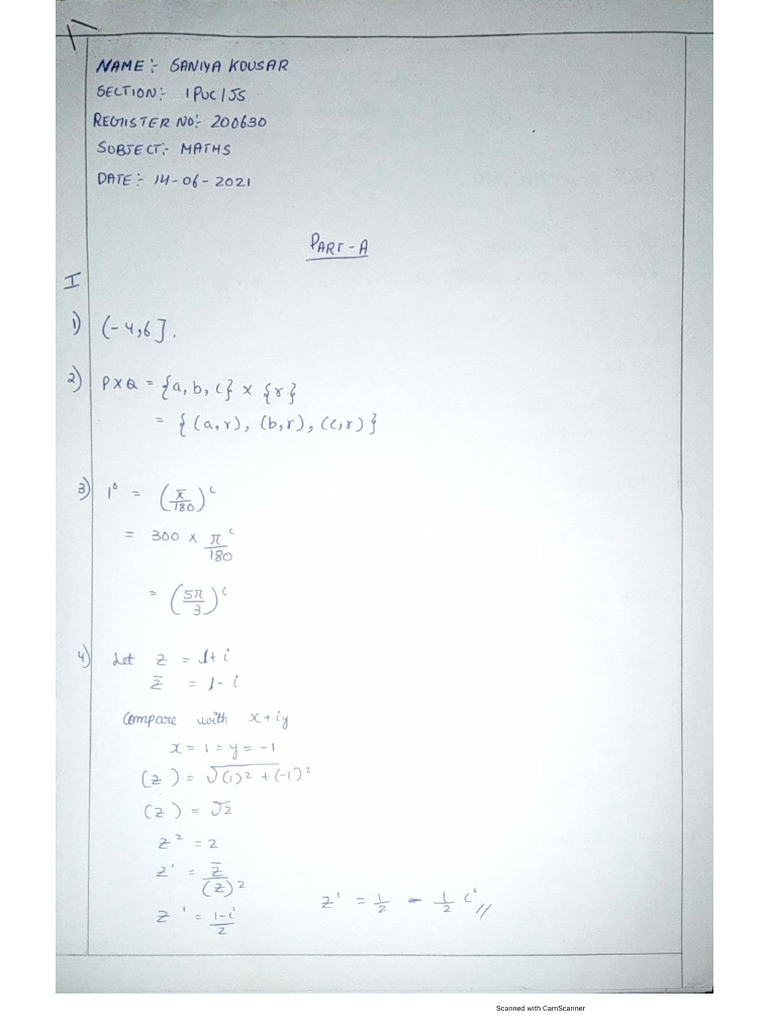 NAME:- SANIYA KOUSAR
SECTION:- I PUC / J5
REGIISTER NO:- 200630
SUBJECT:- MATHS
DATE:- 14-06-2021
PART-A
I
1) (-4,6].
2) P×Q = {a, b, c} × {r}
= { (a,r), (b,r), (c,r) }
3) 1° = (π/180)ᶜ
= 300 × π/180 ᶜ
= (5π/3)ᶜ
4) Let z = 1+i
z̄ = 1-i
Compare with x+iy
x = 1 = y = -1
(z) = √(1)² + (-1)²
(z) = √2
z² = 2
z' = z̄/(z)²
z' = 1-i/2
z' = 1/2 - 1/2 i //
Scanned with CamScanner